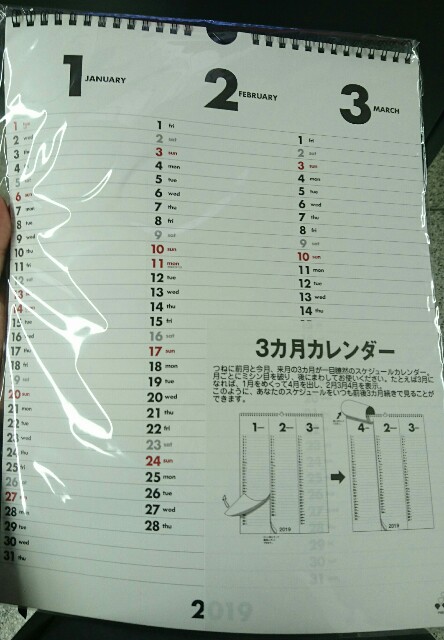 1 JANUARY
2 FEBRUARY
3 MARCH
1 tue
2 wed
3 thu
4 fri
5 sat
6 sun
7 mon
8 tue
9 wed
10 thu
11 fri
12 sat
13 sun
14 mon
15 tue
16 wed
17 thu
18 fri
19 sat
20 sun
21 mon
22 tue
23 wed
24 thu
25 fri
26 sat
27 sun
28 mon
29 tue
30 wed
31 thu
1 fri
2 sat
3 sun
4 mon
5 tue
6 wed
7 thu
8 fri
9 sat
10 sun
11 mon
12 tue
13 wed
14 thu
15 fri
16 sat
17 sun
18 mon
19 tue
20 wed
21 thu
22 fri
23 sat
24 sun
25 mon
26 tue
27 wed
28 thu
1 fri
2 sat
3 sun
4 mon
5 tue
6 wed
7 thu
8 fri
9 sat
10 sun
11 mon
12 tue
13 wed
14 thu
3カ月カレンダー
つねに前月と今月、来月の3カ月が一目瞭然のスケジュールカレンダー。
月ごとにミシン目を破り、後にまわしてお使いください。たとえば3月に
なれば、1月をめくって4月を出し、2月3月4月を表示。
このように、あなたのスケジュールをいつも前後3カ月続きで見ることが
できます。
1 2 3
4 2 3
2019
2019
2019